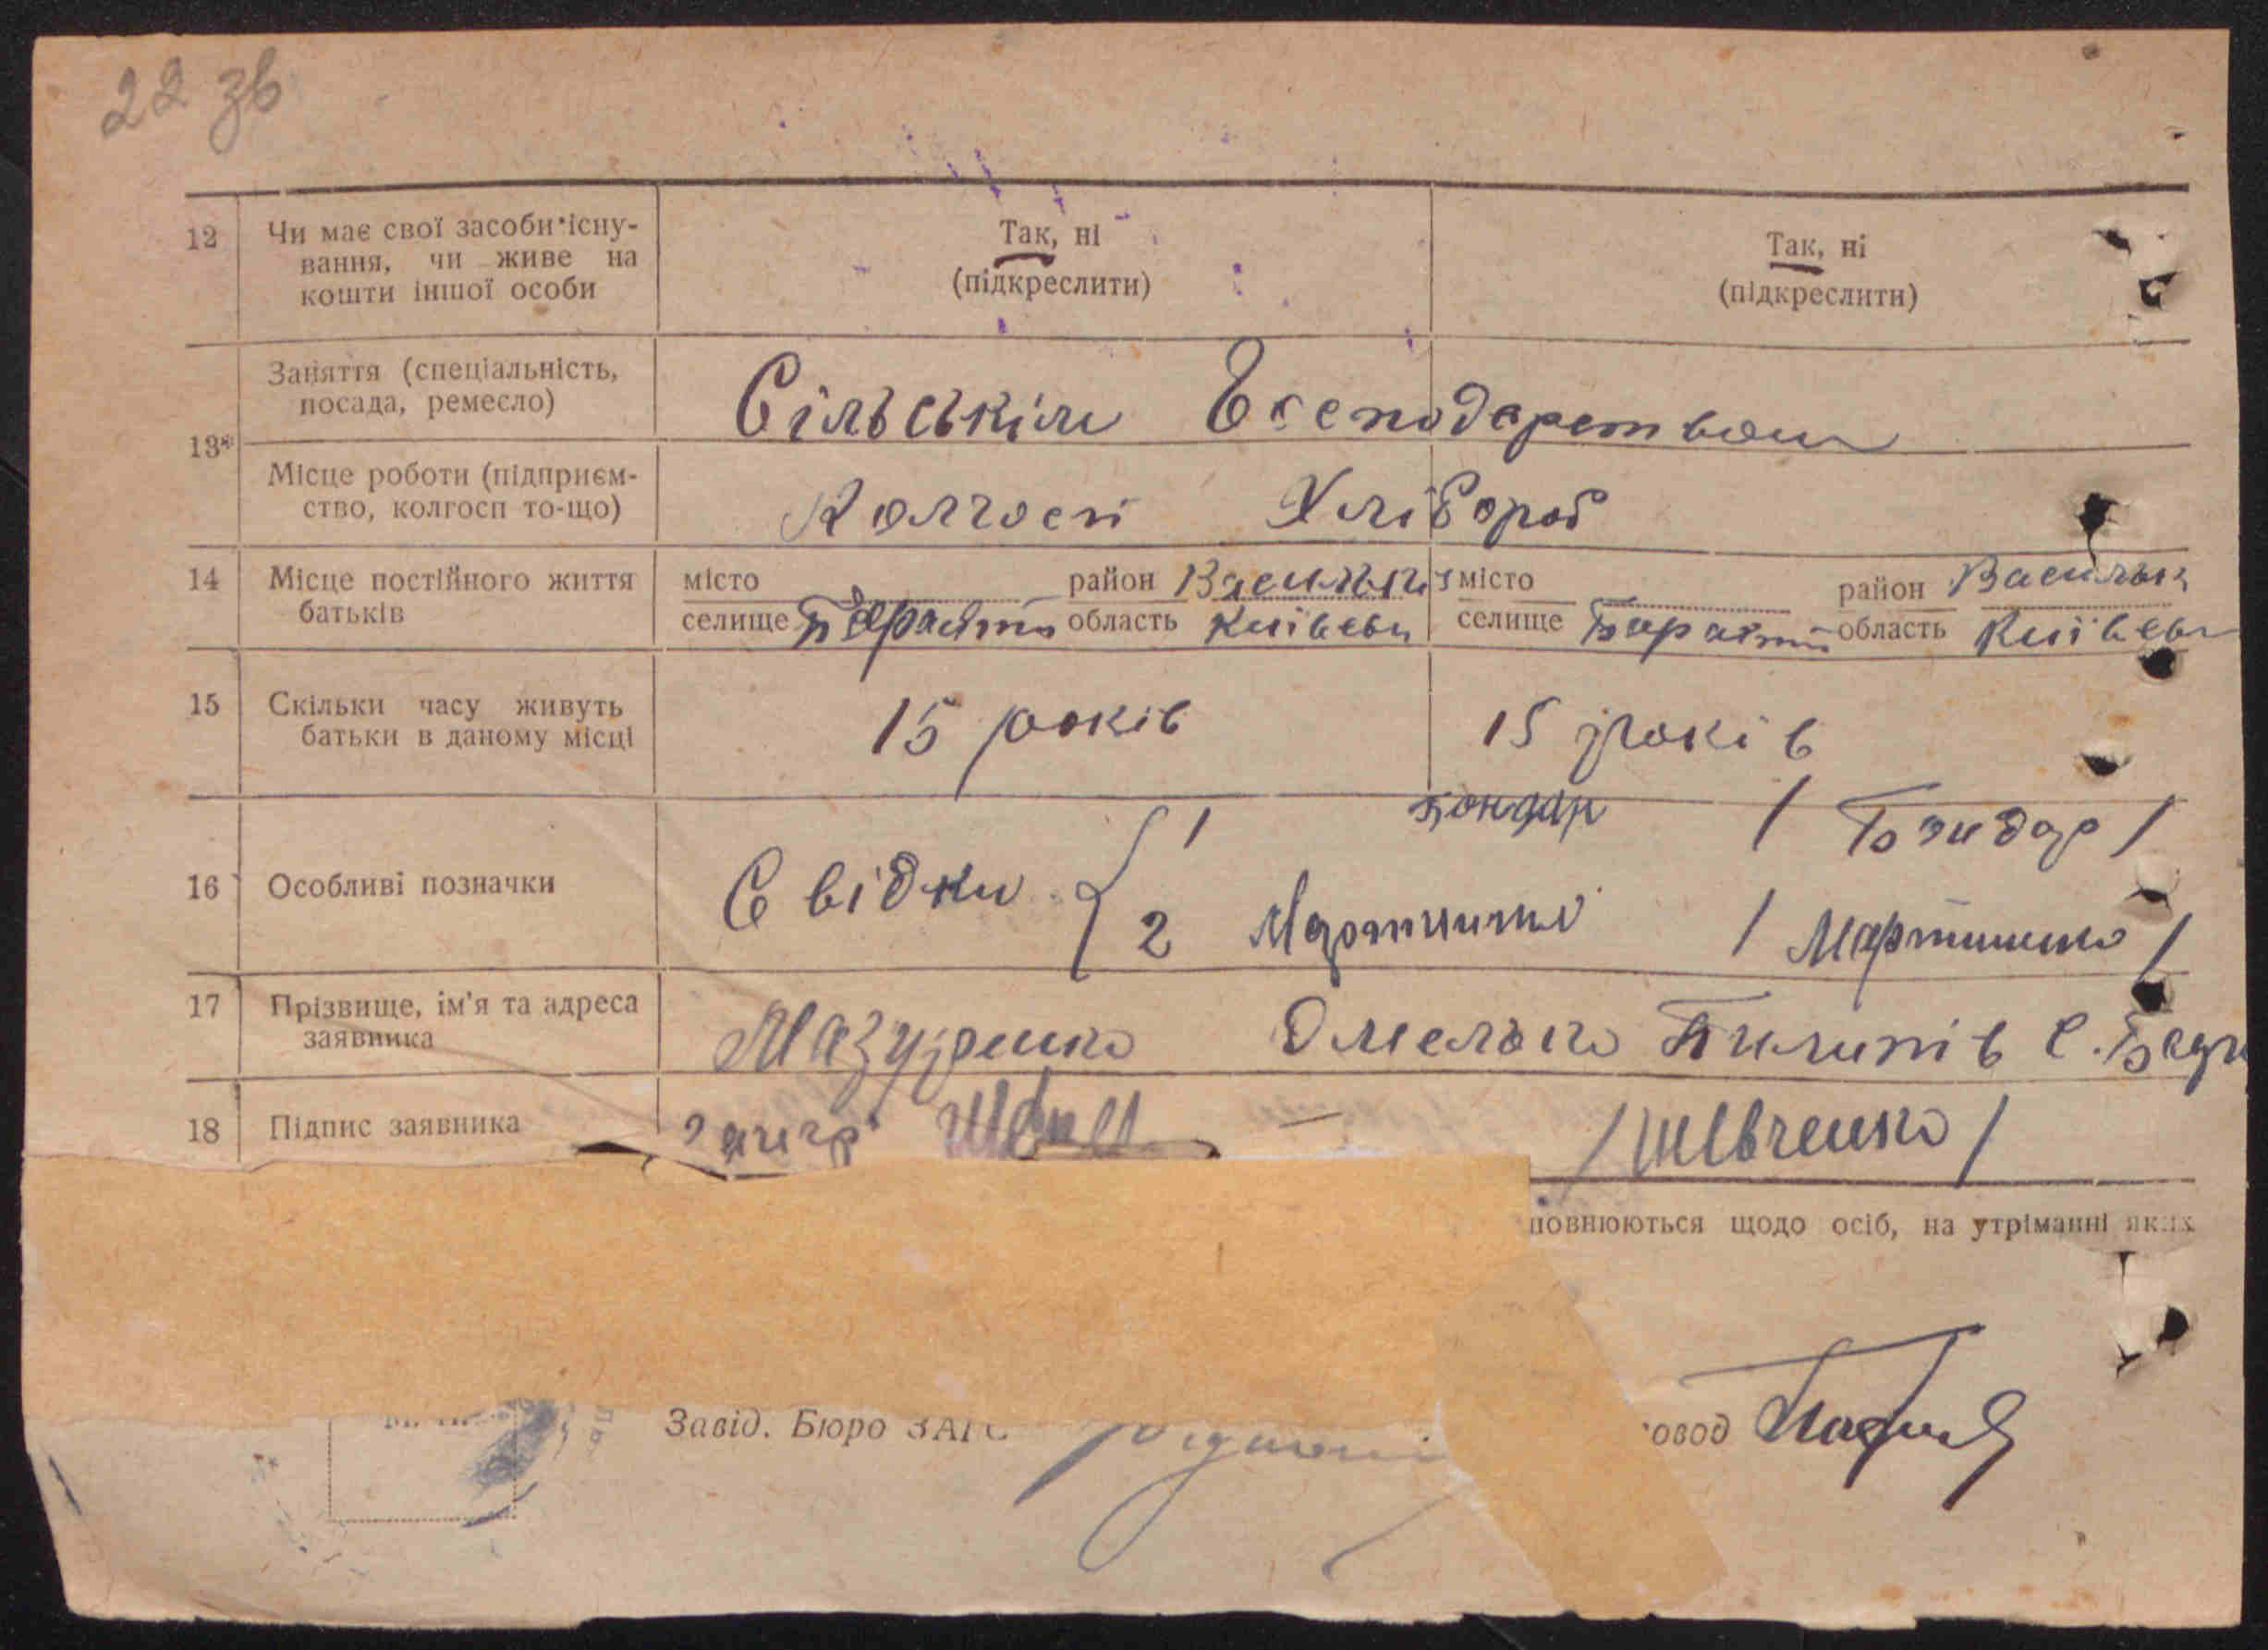 22 зв
12 Чи має свої засоби існу-
вання, чи живе на
кошти іншої особи
Так, ні
(підкреслити)
Так, ні
(підкреслити)
13*
Заняття (спеціальність,
посада, ремесло)
Сільським
Місце роботи (підприєм-
ство, колгосп то-що)
Колгосп Хлібороб
14 Місце постійного життя
батьків
місто район Васильк
селище область Київськ
місто район Васильк
селище область Київськ
15 Скільки часу живуть
батьки в даному місці
15 років
15 років
16 Особливі позначки
Свідки 1 Бондар / Бондар /
2 / Мартиненко /
17 Прізвище, ім'я та адреса
заявника
Мазуренко Омелько Пилипів с.
18 Підпис заявника
/ Шевченко /
повнюються щодо осіб, на утріманні яких
Завід. Бюро ЗАГС
овод